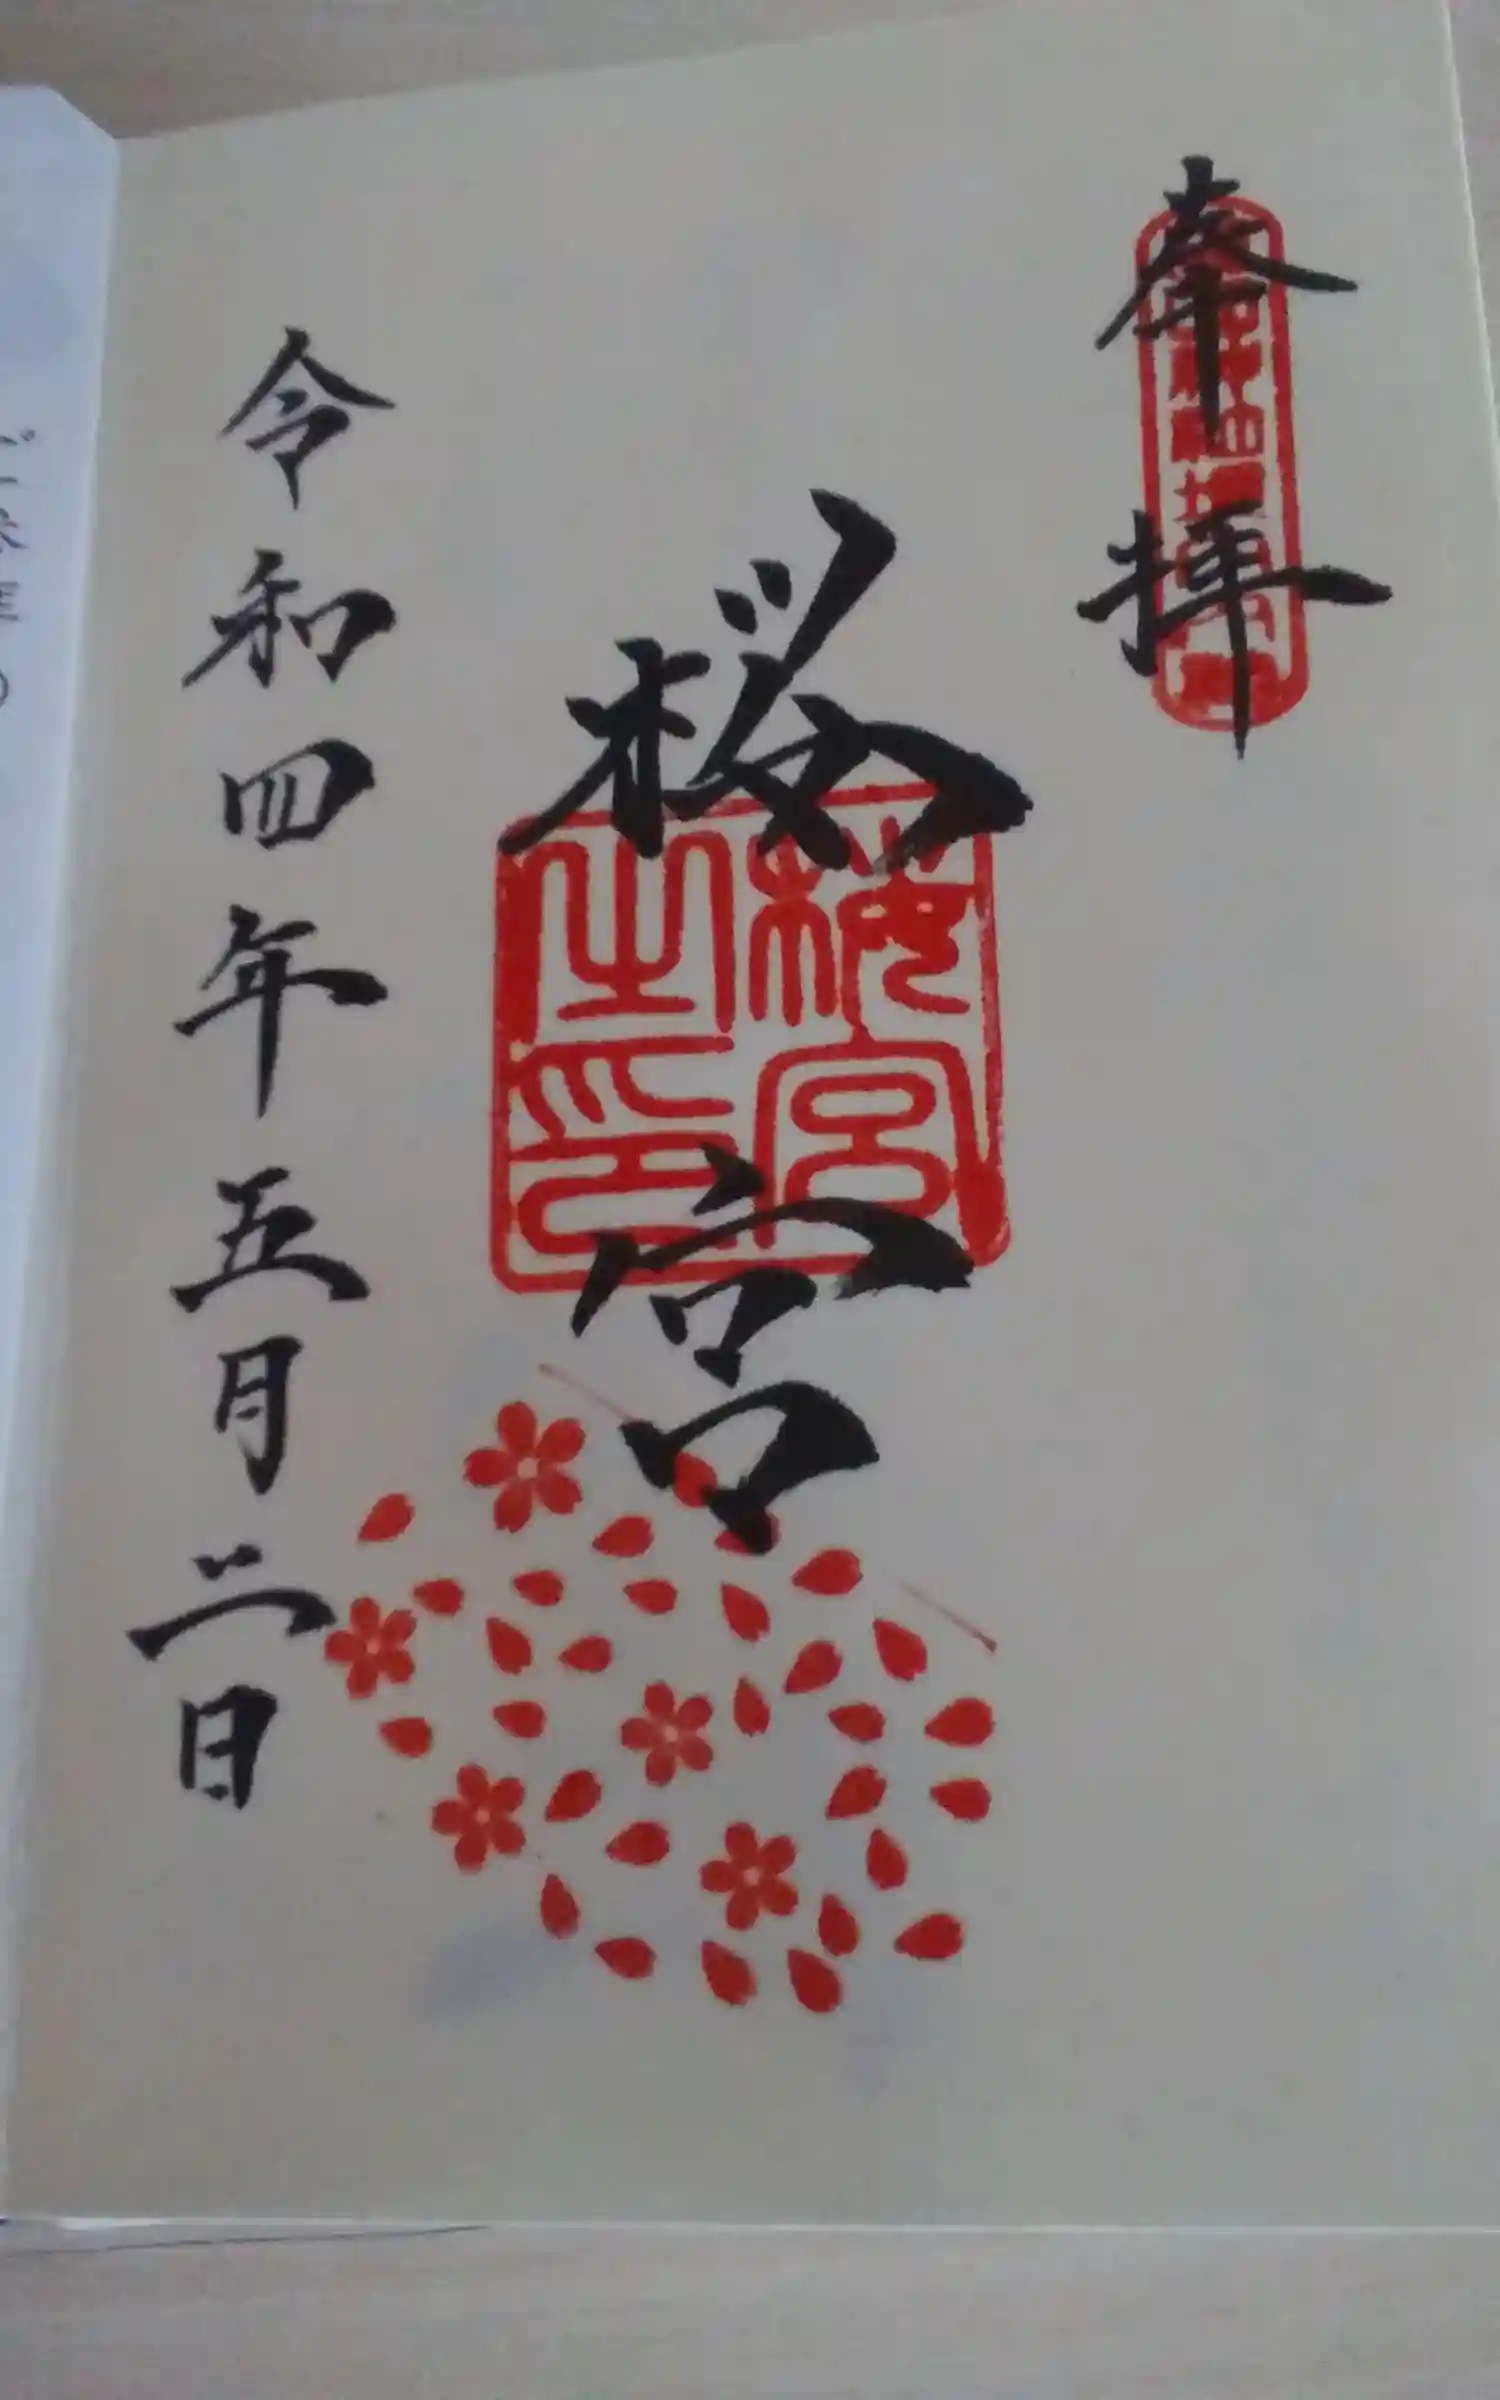 奉拝
桜宮
桜宮
之印
令和四年五月二日